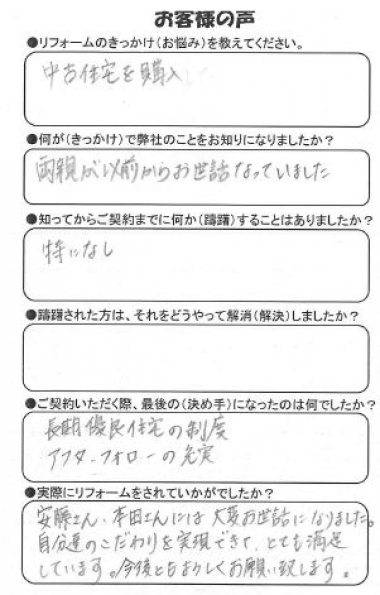 お客様の声
●リフォームのきっかけ(お悩み)を教えてください。
中古住宅を購入
●何が(きっかけ)で弊社のことをお知りになりましたか?
両親が以前からお世話なっていました
●知ってからご契約までに何か(躊躇)することはありましたか?
特になし
●躊躇された方は、それをどうやって解消(解決)しましたか?
●ご契約いただく際、最後の(決め手)になったのは何でしたか?
長期優良住宅の制度
アフターフォローの充実
●実際にリフォームをされていかがでしたか?
安藤さん、本田さんには大変お世話になりました。
自分達のこだわりを実現できて、とても満足
しています。今後ともよろしくお願い致します。